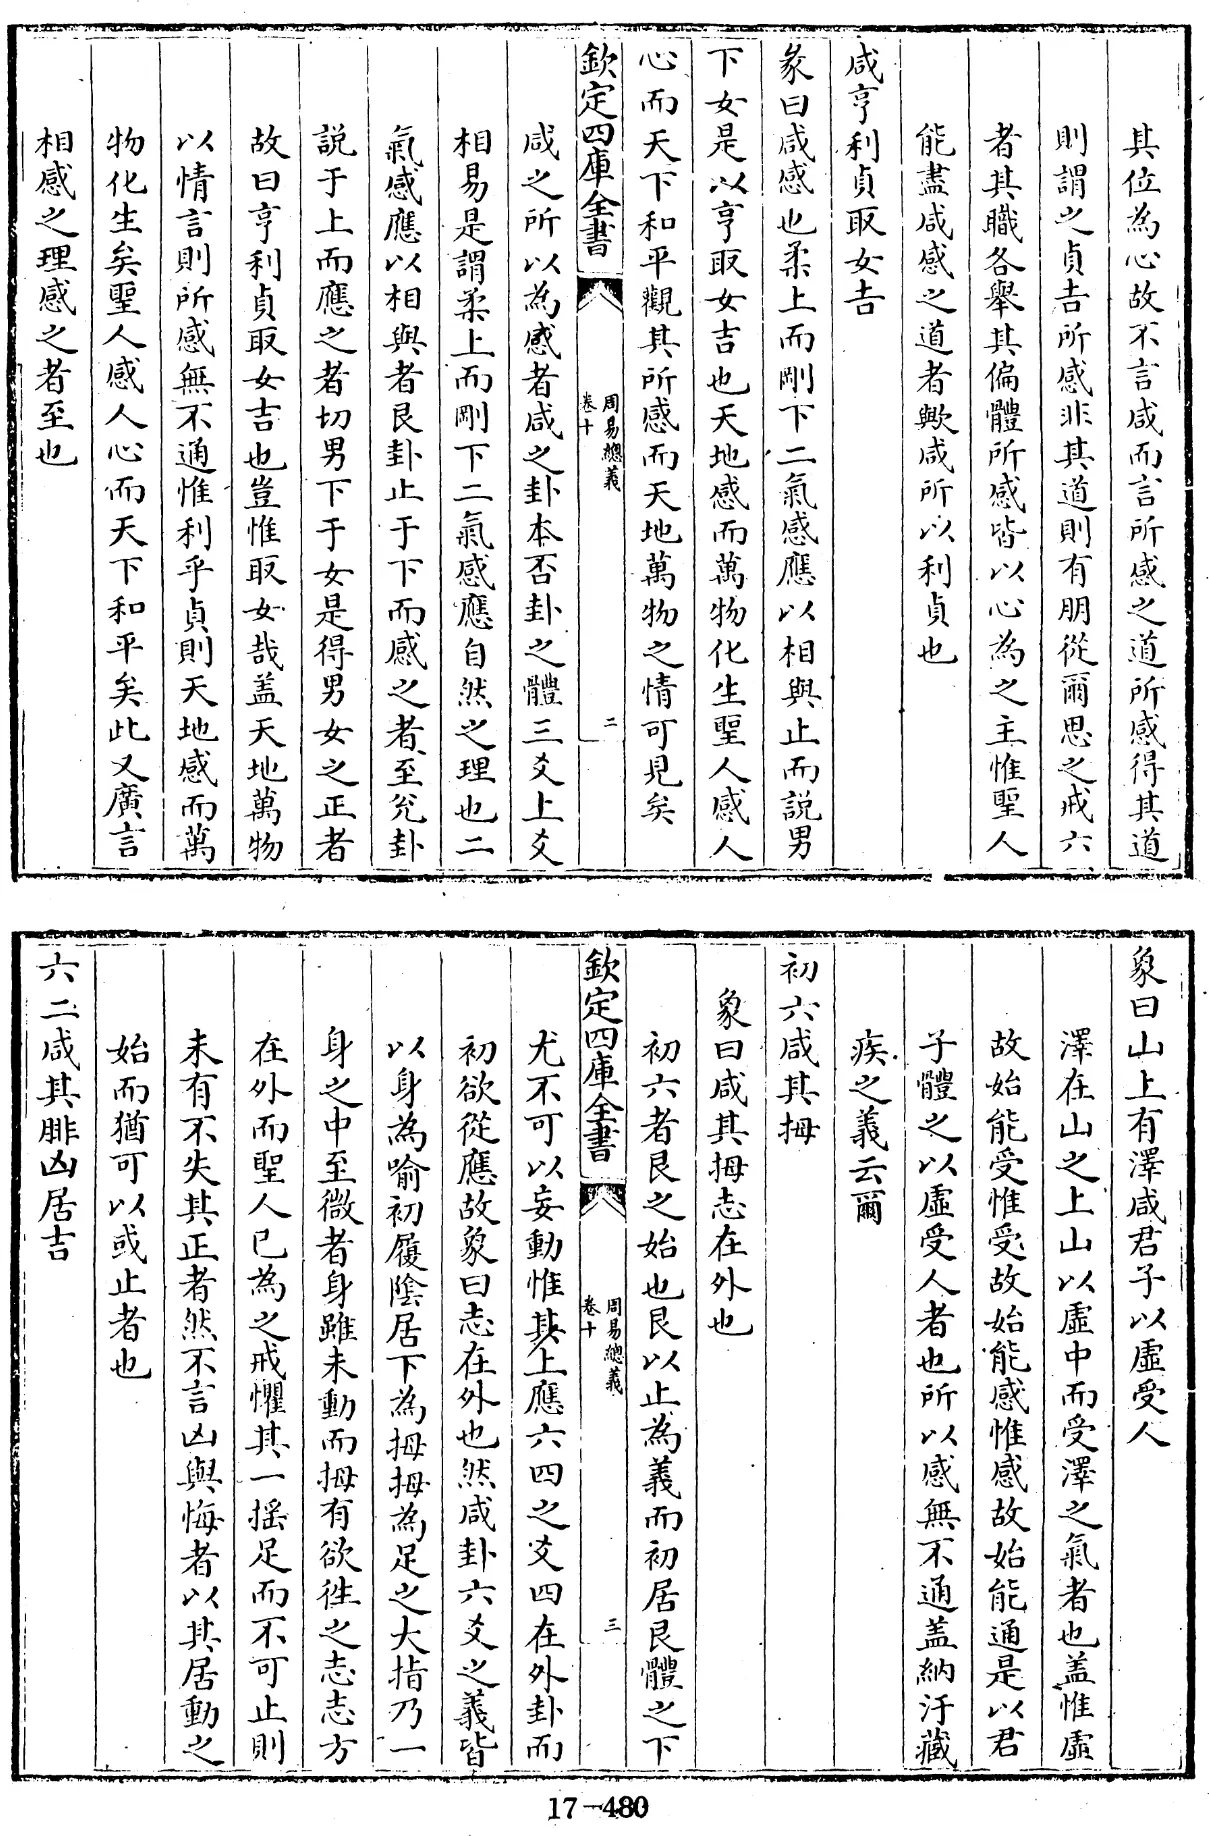 其位為心故不言咸而言所感之道所感得其道
則謂之貞吉所感非其道則有朋從爾思之戒六
者其職各舉其偏體所感皆以心為之主惟聖人
能盡咸感之道者歟咸所以利貞也
咸亨利貞取女吉
彖曰咸感也柔上而剛下二氣感應以相與止而說男
下女是以亨取女吉也天地感而萬物化生聖人感人
心而天下和平觀其所感而天地萬物之情可見矣
欽定四庫全書
周易總義
卷十
二
咸之所以為感者咸之卦本否卦之體三爻上爻
相易是謂柔上而剛下二氣感應自然之理也二
氣感應以相與者艮卦止于下而感之者至兊卦
說于上而應之者切男下于女是得男女之正者
故曰亨利貞取女吉也豈惟取女哉盖天地萬物
以情言則所感無不通惟利乎貞則天地感而萬
物化生矣聖人感人心而天下和平矣此又廣言
相感之理感之者至也
象曰山上有澤咸君子以虛受人
澤在山之上山以虛中而受澤之氣者也盖惟虛
故始能受惟受故始能感惟感故始能通是以君
子體之以虛受人者也所以感無不通盖納汙藏
疾之義云爾
初六咸其拇
象曰咸其拇志在外也
初六者艮之始也艮以止為義而初居艮體之下
欽定四庫全書
周易總義
卷十
三
尤不可以妄動惟其上應六四之爻四在外卦而
初欲從應故象曰志在外也然咸卦六爻之義皆
以身為喻初履陰居下為拇拇為足之大指乃一
身之中至微者身雖未動而拇有欲徃之志志方
在外而聖人已為之戒懼其一搖足而不可止則
未有不失其正者然不言凶與悔者以其居動之
始而猶可以或止者也
六二咸其腓凶居吉
17-480